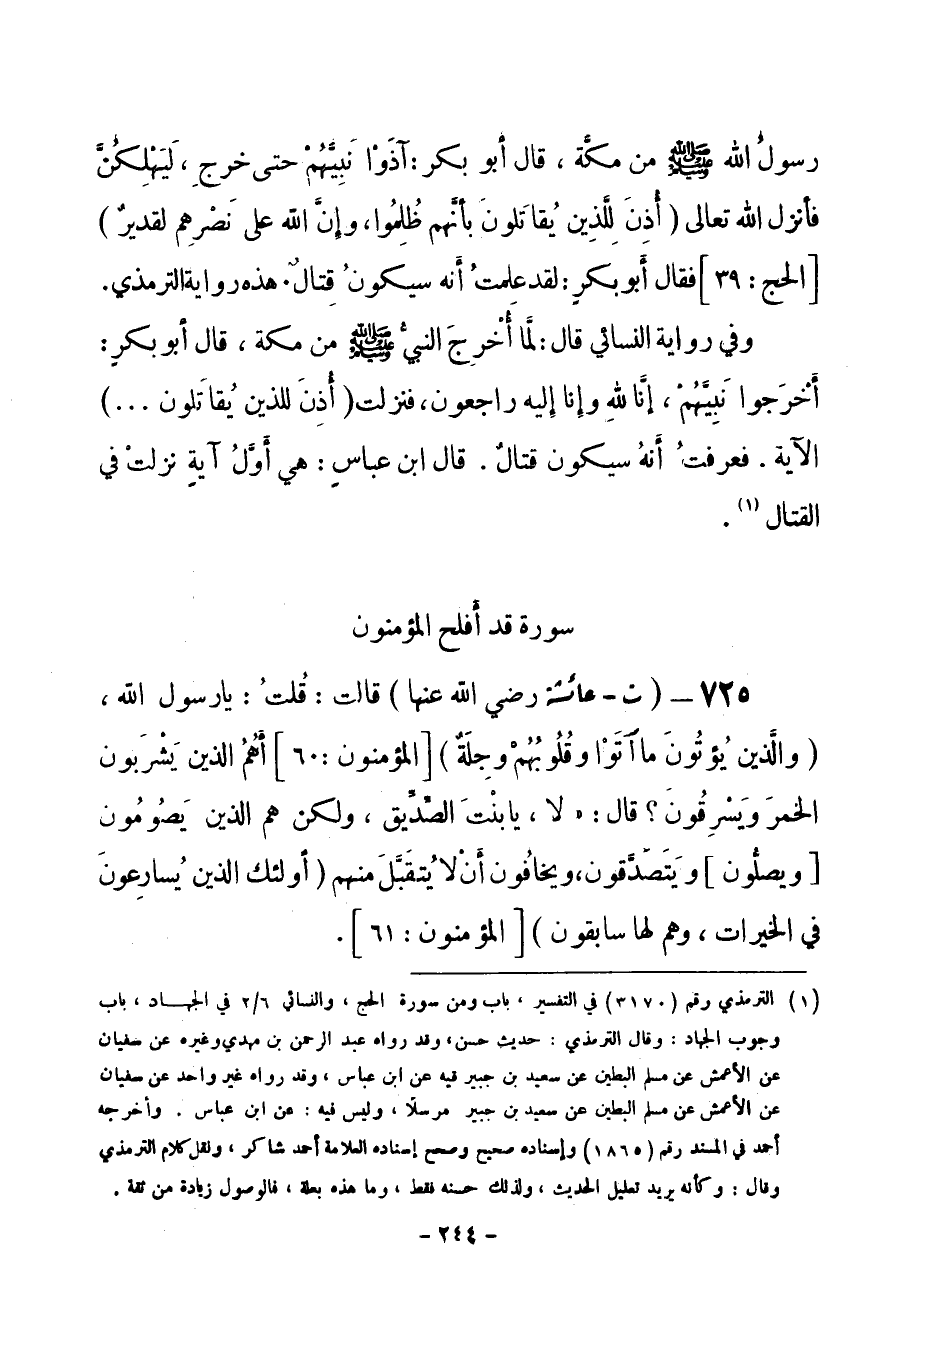 رسولُ الله ﷺ من مكَّة ، قال أبو بكر : آذَوْا نَبِيَّهُمْ حتى خرج ، لَيَهْلِكُنَّ
فأنزل الله تعالى ( أُذِنَ لِلَّذين يُقاتَلونَ بأنَّهم ظُلِمُوا، وإنَّ الله على نَصْرِهم لقديرٌ )
[الحج : ٣٩] فقال أبو بكرٍ : لقد علمتُ أنه سيكونُ قتالٌ. هذه رواية الترمذي.
وفي رواية النسائي قال : لمَّا أُخْرِجَ النبيُّ ﷺ من مكة ، قال أبو بكرٍ :
أخْرَجوا نَبِيَّهُمْ ، إنَّا للهِ وإنا إليه راجعون، فنزلت ( أُذِنَ للذين يُقاتَلون ...)
الآية . فعرفتُ أنهُ سيكون قتالٌ . قال ابن عباسٍ : هي أوَّلُ آيةٍ نزلتْ في
القتال (١) .
سورة قد أفلح المؤمنون
٧٢٥ – ( ت - عائشة رضي الله عنها ) قالت : قُلتُ : يارسول الله ،
( والَّذين يُؤتُونَ ما آتَوْا وقُلُوبُهُمْ وجِلَةٌ ) [المؤمنون : ٦٠] أَهُمُ الذين يَشْرَبون
الخمرَ ويَسْرِقُونَ ؟ قال : « لا ، يا بنْتَ الصِّدِّيق ، ولكن هم الذين يَصُومُون
[ ويصلُّون ] ويَتَصدَّقون، ويخافُون أنْ لا يُتَقبَّلَ منهم ( أولئك الذين يُسارعونَ
في الخيرات ، وهم لها سابقون ) [ المؤمنون : ٦١ ] .
(١) الترمذي رقم (٣١٧٠) في التفسير ، باب ومن سورة الحج ، والنسائي ٢/٦ في الجهاد ، باب
وجوب الجهاد : وقال الترمذي : حديث حسن، وقد رواه عبد الرحمن بن مهدي وغيره عن سفيان
عن الأعمش عن مسلم البطين عن سعيد بن جبير فيه عن ابن عباس ، وقد رواه غير واحد عن سفيان
عن الأعمش عن مسلم البطين عن سعيد بن جبير مرسلًا ، وليس فيه : عن ابن عباس . وأخرجه
أحمد في المسند رقم (١٨٦٥) وإسناده صحيح وصحح إسناده العلامة أحمد شاكر ، ونقل كلام الترمذي
وقال : وكأنه يريد تعليل الحديث ، ولذلك حسنه فقط ، وما هذه بعلة ، فالوصول زيادة من ثقة .
- ٢٤٤ -